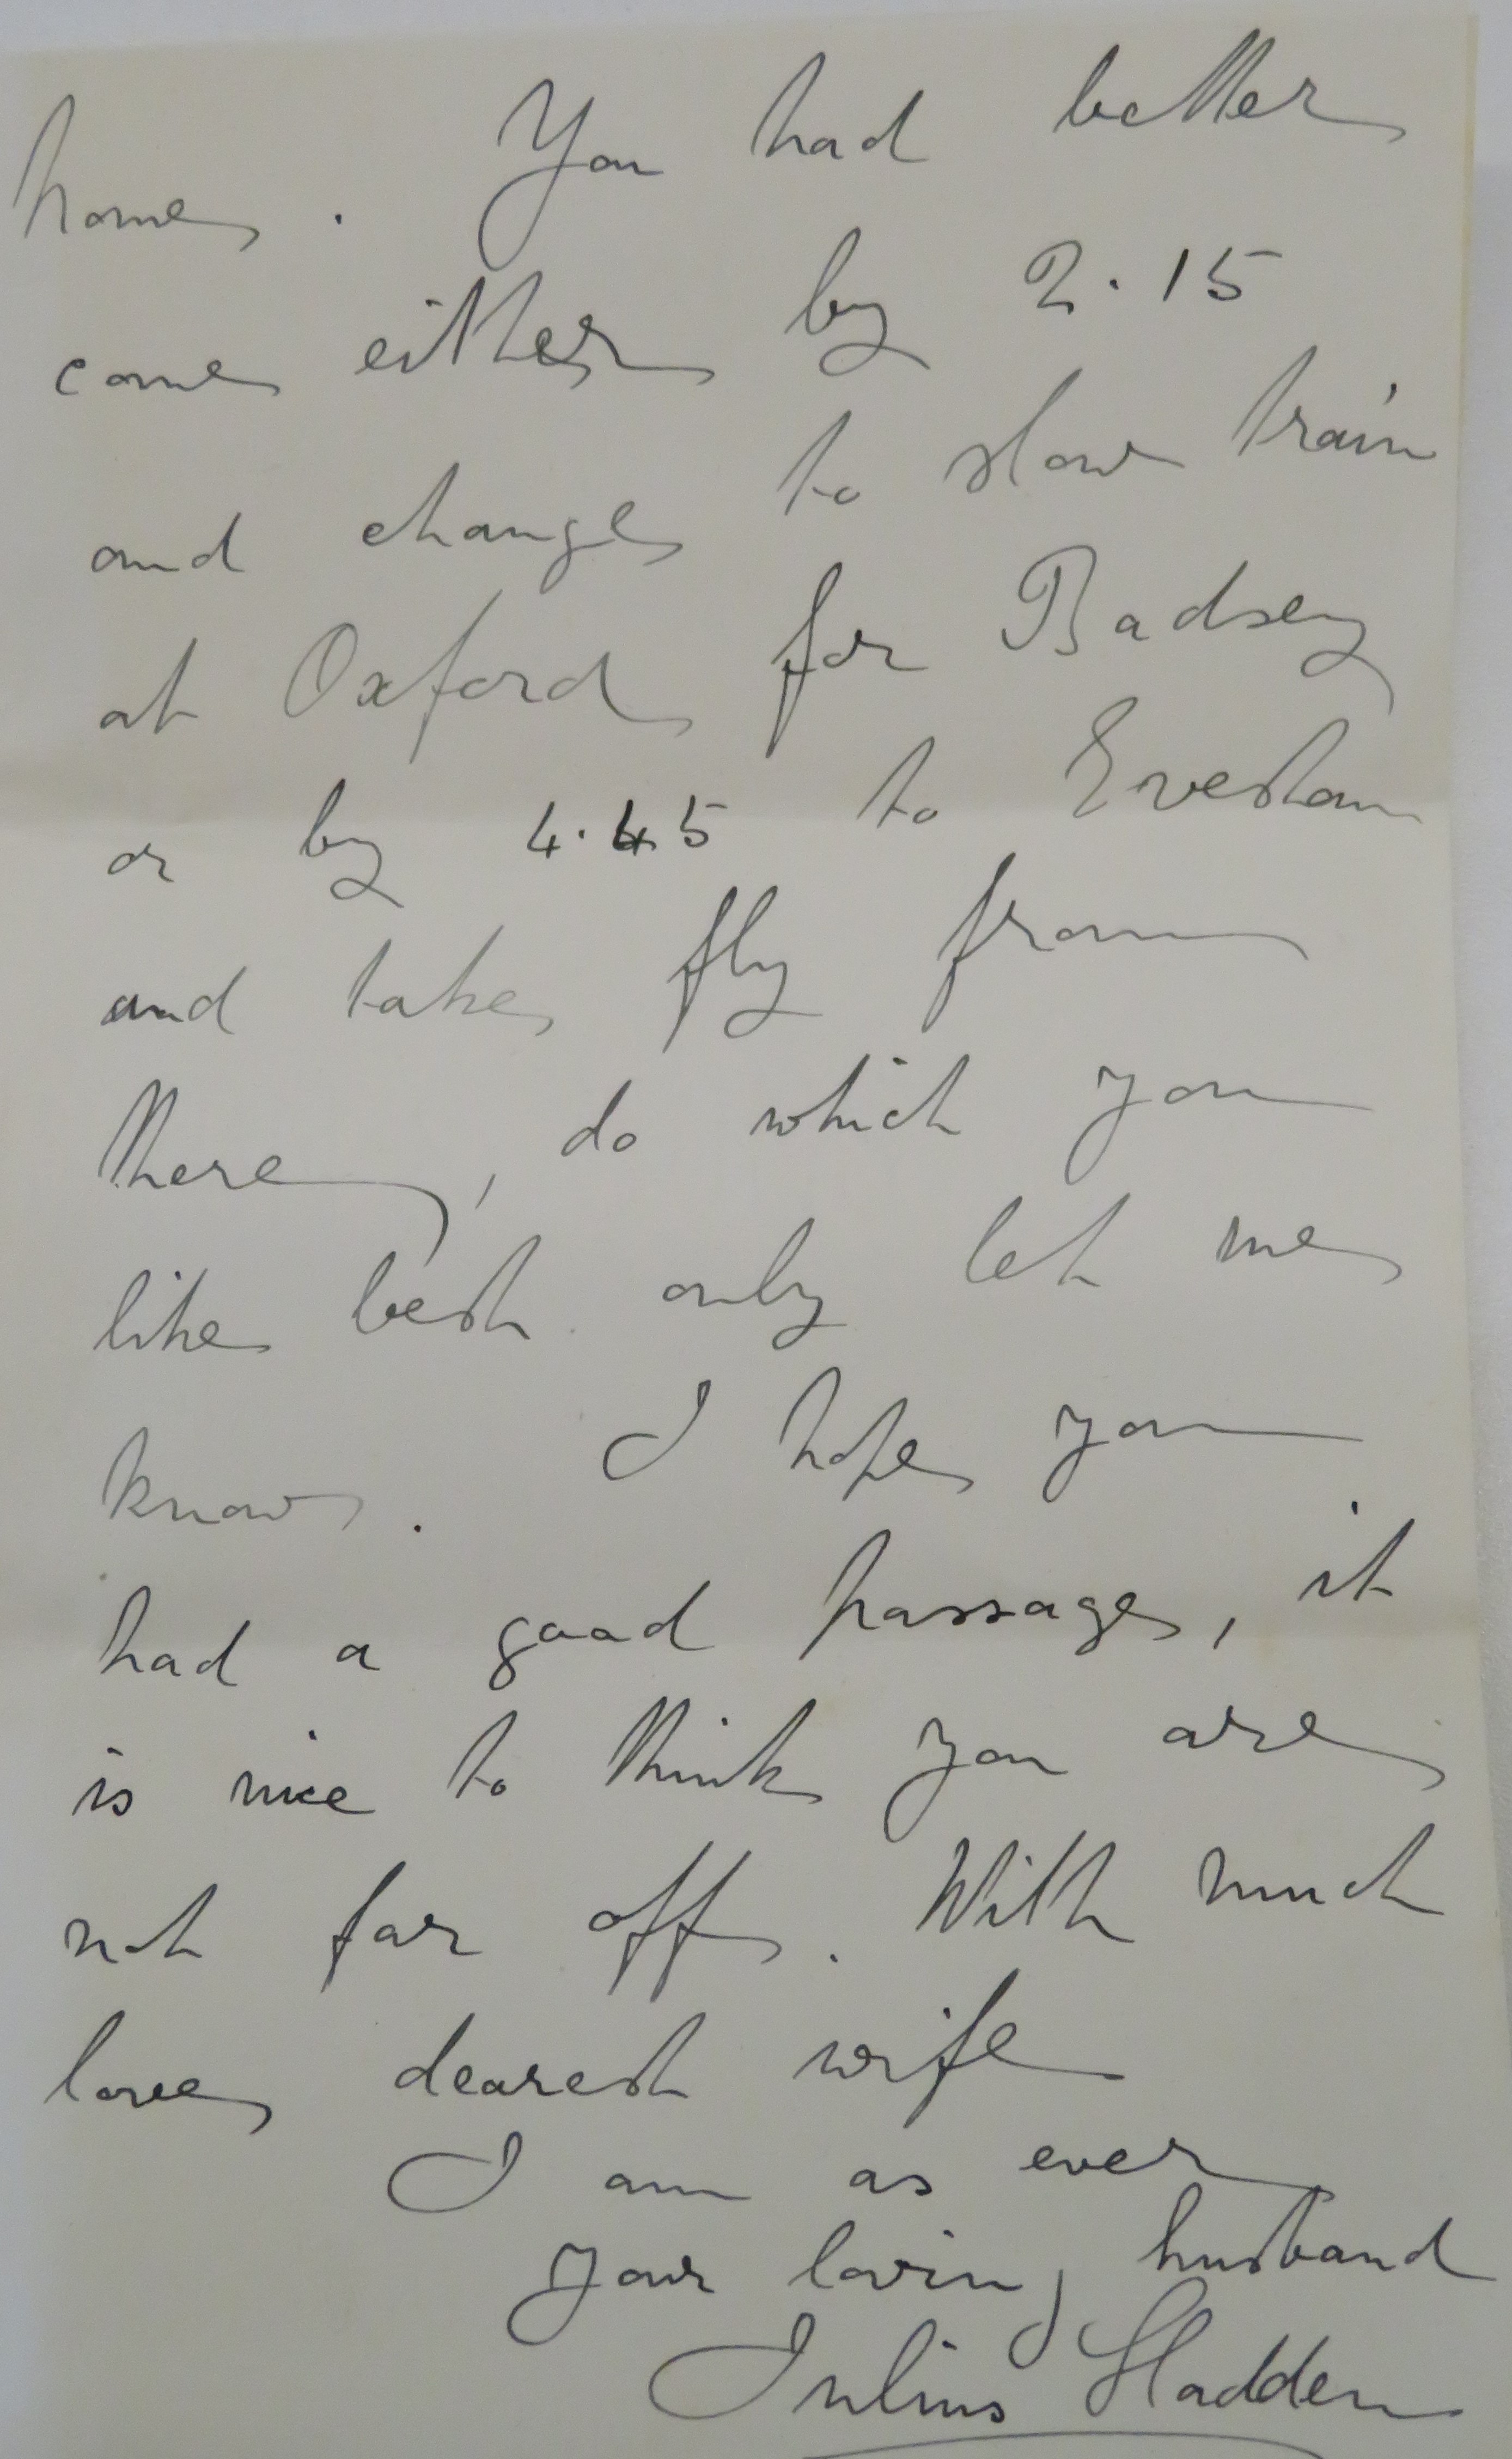 home. You had better
come either by 2.15
and change to slow train
at Oxford for Badsey
or by 4.45 to Evesham
and take fly from
there, do which you
like best only let me
know. I hope you
had a good passage, it
is nice to think you are
not far off. With much
love dearest wife
I am as ever
your loving husband
Julius Sladden